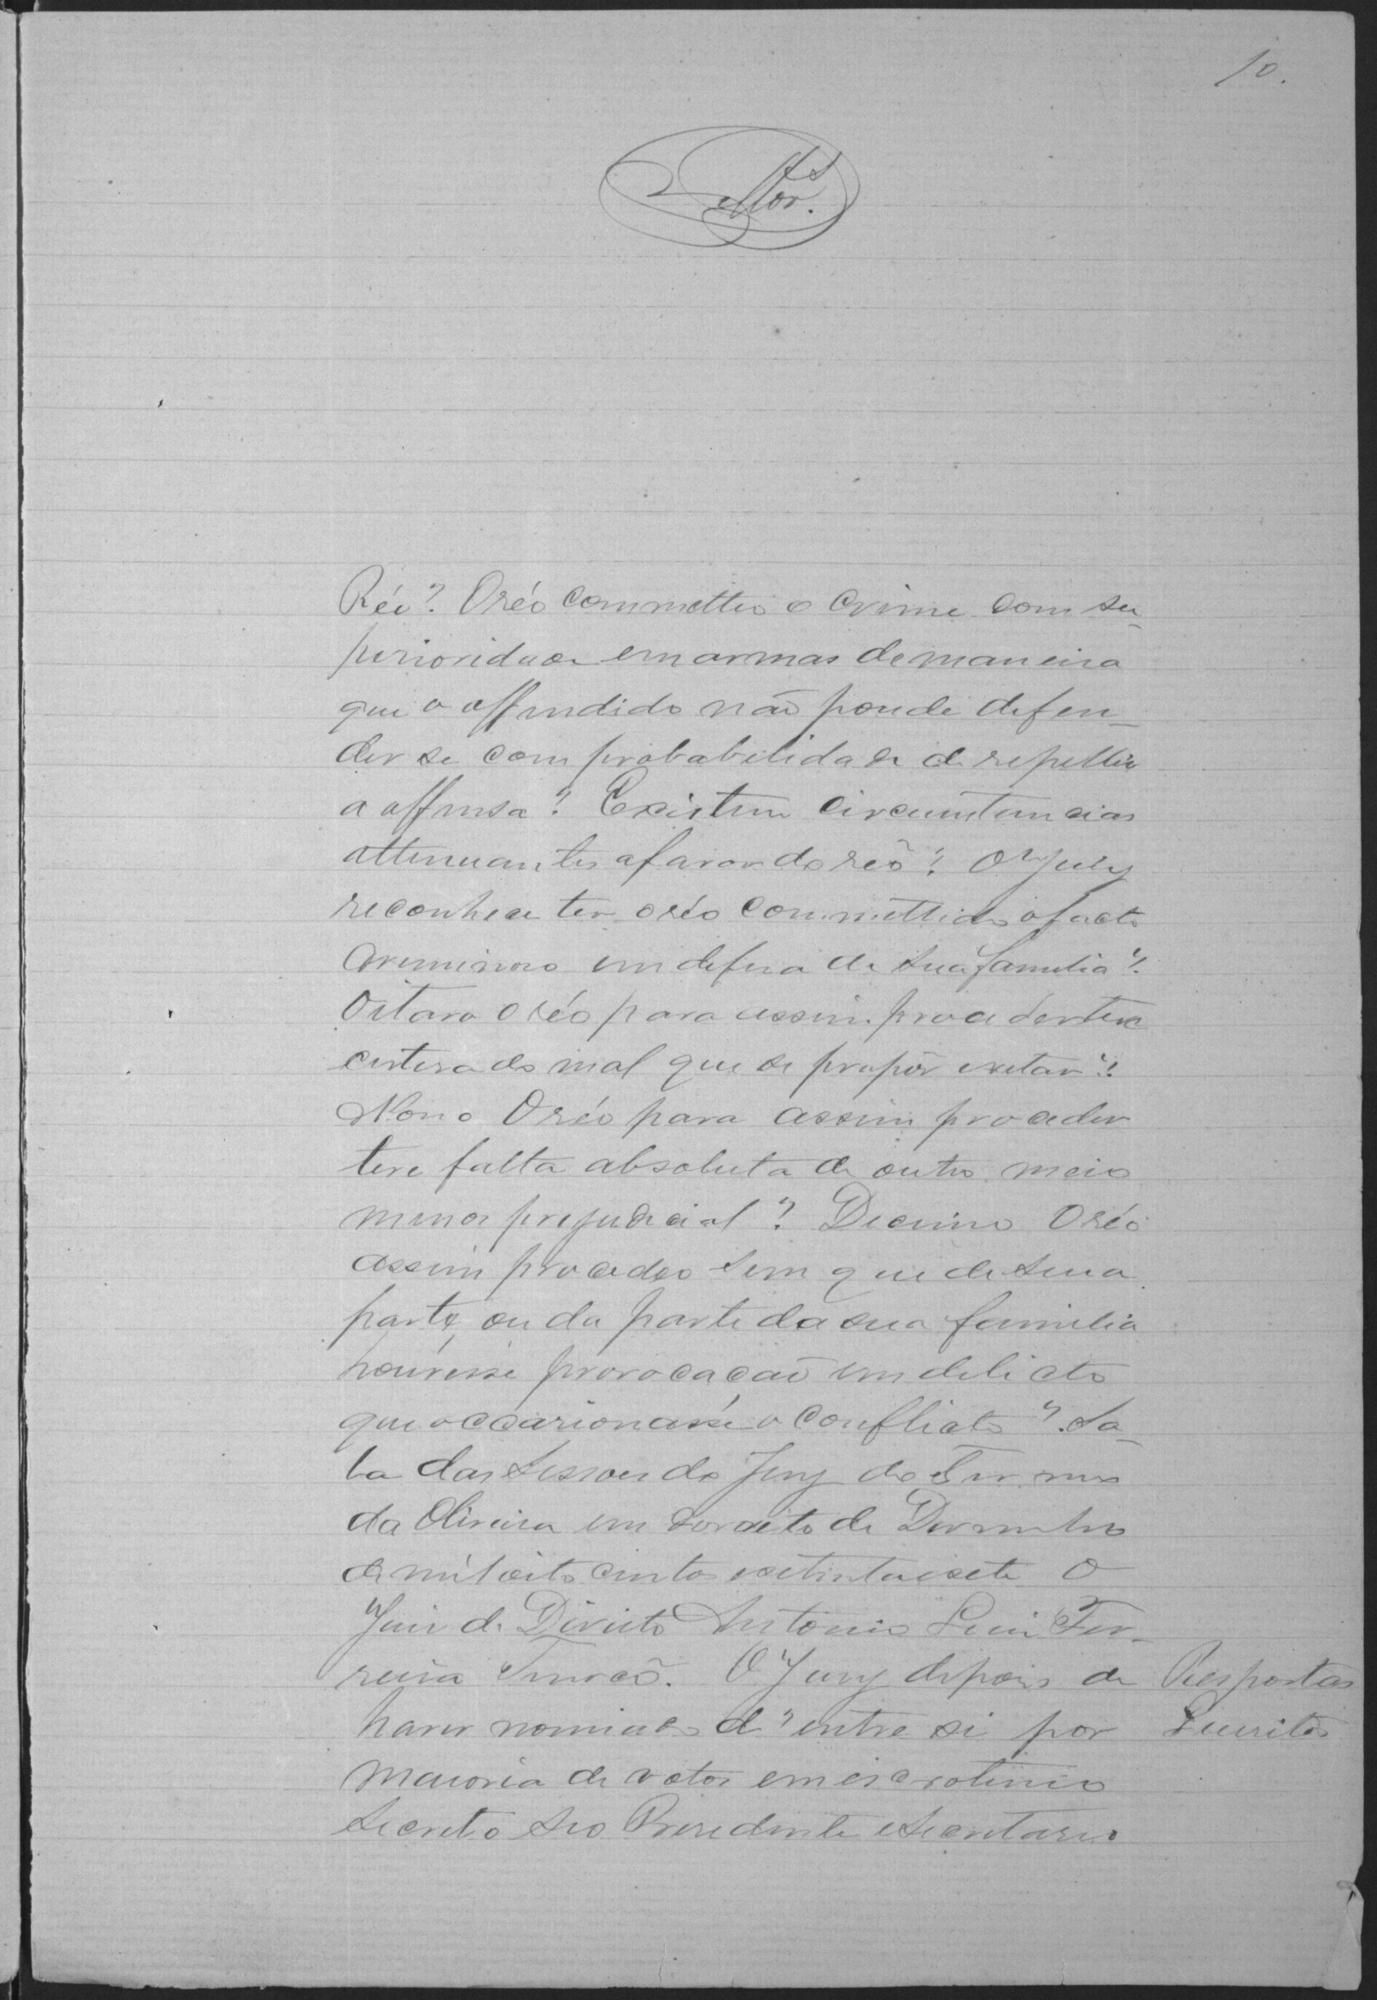 10.
Réo? O réo commetteo o crime com su-
perioridade em armas de maneira
que o offendido não poude defen-
der se com probabilidade de repellir
a offensa? Existem circumstancias
attenuantes a favor do reõ? O Jury
reconhece ter o réo commettido o facto
creminoso em defesa de sua familia?
Oitavo O réo para assim proceder teve
certesa do mal que se propôs evitar?
Nono O réo para assim proceder
teve falta absoluta de outro meio
menos prejudicial? Decimo O réo
assim procedeo sem que de sua
parte, ou da parte da sua familia
houvesse provocacão em delicto
que occasionasse o conflicto? Sa-
la das Sessoes do Jury do Termo
da Oliveira em dezoito de Desembro
de mil oito centos e setenta e sete O
Juis de Direito Antonio Luis Fer-
reira Tinocõ. O Jury depois de
Respostas
haver nomiado d'entre si por
Escrito
maioria de votos em escrotinio
Secreto seo Presidente e Secretario